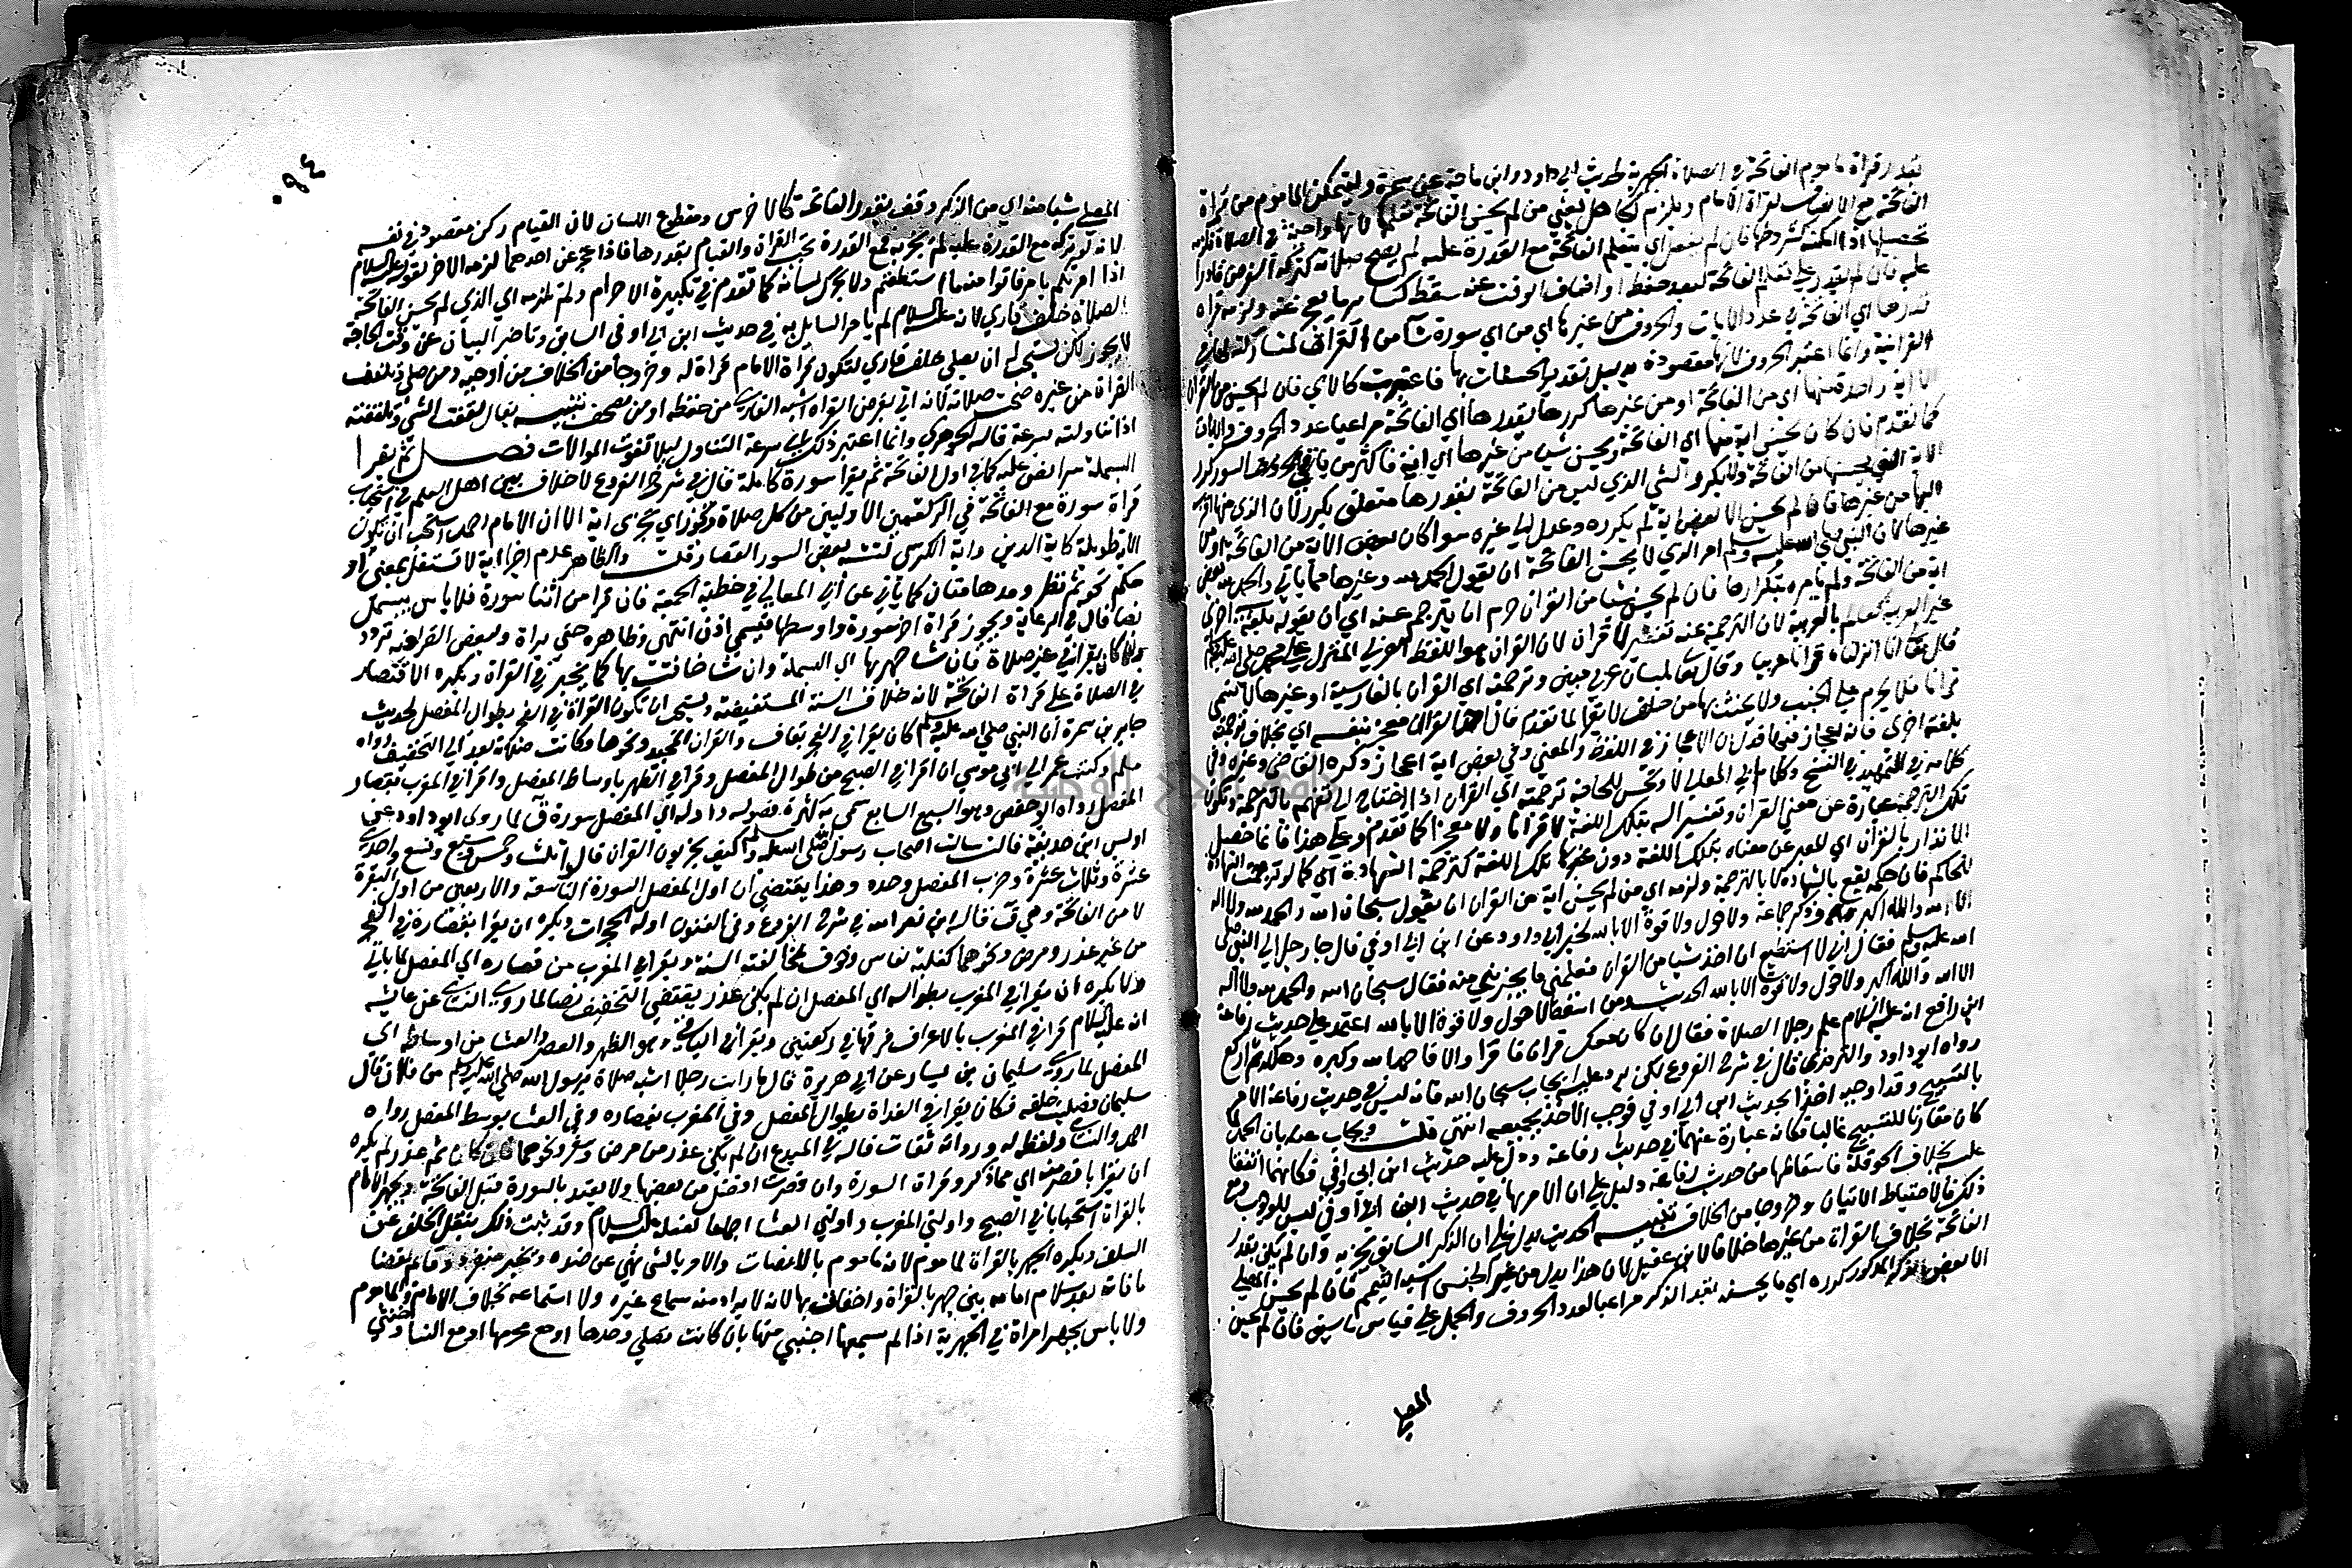 بقدر قراة ماموم الفاتحة في الصلاة الجهرية لحديث ابي داود وابن ماجة عن سمرة وليتمكن الماموم من قراة
الفاتحة مع الانصات لقراة الامام ويلزم الجاهل يعني من لم يحسن الفاتحة تعلمها لانها واجبة في الصلاة فلزمه
تحصيلها اذا امكنه كشروطها فان لم يفعل اي يتعلم الفاتحة مع القدرة عليه لم تصح صلاته لتركه الفرض قادرا
عليه فان لم يقدر على تعلم الفاتحة لبعد حفظ او ضاف الوقت عنه سقط كساير ما يعجز عنه ولزمه قراة
قدرها اي الفاتحة في عدد الايات والحروف من غيرها اي من اي سورة شا من القران لمشاركته لها في
القرانية وانما اعتبر الحروف لانها مقصودة بدليل تقدير الحسنات بها فاعتبرت كالاي فان لم يحسن من القران
الا اية واحدة منها اي من الفاتحة او من غيرها كررها بقدرها اي الفاتحة مراعيا عدد الحروف والايات
كما تقدم فان كان يحسن اية منها اي الفاتحة ويحسن شيا من غيرها اي اية فاكثر من باقي السور كرر
الاية التي يحسنها من الفاتحة ولا يكرر الشي الذي ليس من الفاتحة بقدرها متعلق بكرر لان الذي منها اقرب
اليها من غيرها فان لم يحسن الا بعض اية لم يكرره وعدل الى غيره سوا كان بعض الاية من الفاتحة او من
غيرها لان النبي صلى الله عليه وسلم امر الذي لا يحسن الفاتحة ان يقول الحمد لله وغيرها مما ياتي والحمد لله بعض
اية من الفاتحة ولم يامره بتكرارها فان لم يحسن شيا من القران حرم ان يترجم عنه اي ان يقوله بلغة اخرى
غير العربية كعالم بالعربية لان الترجمة عنه تفسير لا قران لان القران هو اللفظ العربي المنزل على محمد صلى الله عليه وسلم
قال تعالى انا انزلناه قرانا عربيا وقال تعالى بلسان عربي مبين وترجمته اي القران بالفارسية او غيرها لا تسمى
قرانا فلا يحرم على الجنب ولا يحنث بها من حلف لا يقرا لما تقدم قال احمد القران معجز بنفسه اي بخلاف ترجمته
بلغة اخرى فانه لا اعجاز فيها فدل ان الاعجاز في اللفظ والمعنى وفي بعض اية اعجاز ذكره القاضي وغيره وفي
كلامه في التمهيد في النسخ وكلام ابي المعالي لا وتحسن للحاجة ترجمته اي القران اذا احتاج الى تفهيمه بالترجمة وتكون
تلك الترجمة عبارة عن معنى القران وتفسيرا له بتلك اللغة لا قرانا ولا معجزا كما تقدم وعلى هذا فانما حصل
الانذار بالقران اي المعبر عن معناه بتلك اللغة دون غيرها تلك اللغة كترجمة الشهادة اي كما لو ترجمت الشهادة
للحاكم فان حكمه يقع بالشهادة لا بالترجمة ولزمه اي من لم يحسن اية من القران ان يقول سبحان الله والحمد لله ولا اله
الا الله والله اكبر وذكر جماعة ولا حول ولا قوة الا بالله لخبر ابي داود عن ابن ابي اوفي قال جا رجل الى النبي صلى
الله عليه وسلم فقال اني لا استطيع ان اخذ شيا من القران فعلمني ما يجزيني منه فقال سبحان الله والحمد لله ولا اله
الا الله والله اكبر ولا حول ولا قوة الا بالله الحديث ومن اسقط لا حول ولا قوة الا بالله اعتمد على حديث رفاعة
ابن رافع انه عليه السلام علم رجلا الصلاة فقال ان كان معك قران فاقرا والا فاحمد الله وكبره وهلله ثم اركع
رواه ابو داود والترمذي قال في شرح الفروع لكن يرد عليه ايجاب سبحان الله فانه ليس في حديث رفاعة الامر
بالتسبيح وقد اوجبه اخذا بحديث ابن ابي اوفي فوجب الاخذ بجميعه انتهى قلت ويجاب عنه بان الحمد لما
كان مقارنا للتسبيح غالبا فكانه عبارة عنهما في حديث رفاعة ودل عليه حديث ابن ابي اوفي فكانهما اتفقا
عليه بخلاف الحوقلة فاسقاطها من حديث رفاعة دليل على ان الامر بها في حديث ابن ابي اوفي ليس للوجوب ومع
ذلك فالاحتياط الاتيان وخروجا من الخلاف تنبيه الحديث يدل على ان الذكر السابق يجزيه وان لم يكن بقدر
الفاتحة بخلاف القراة من غيرها خلافا لابن عقيل لان هذا بدل من غير الجنس اشبه التيمم فان لم يحسن المصلي
الا بعض الذكر المذكور كرره اي ما يحسنه بقدر الذكر مراعيا لعدد الحروف والجمل على قياس ما سبق فان لم يحسن
المصلي
٠٩٤
المصلي شيا منه اي من الذكر وقف بقدر الفاتحة كالاخرس ومقطوع اللسان لان القيام ركن مقصود في نفسه
لانه لو تركه مع القدرة عليه لم يجزيه فمع القدرة تجب القراة والقيام بقدرها فاذا عجز عن احدهما لزمه الاخر لقوله عليه السلام
اذا امرتكم بامر فاتوا منه ما استطعتم ولا يحرك لسانه كما تقدم في تكبيرة الاحرام ولم تلزمه اي الذي لم يحسن الفاتحة
الصلاة خلف قاري لانه عليه السلام لم يامر السايل به في حديث ابن ابي اوفي السابق وتاخير البيان عن وقت الحاجة
لا يجوز لكن يستحب له ان يصلي خلف قاري لتكون قراة الامام قراة له وخروجا من الخلاف من اوجبه ومن صلى وتلقف
القراة من غيره صحت صلاته لانه اتى بفرض القراة اشبه القاري من حفظه او من مصحف تنبيه يقال تلقفت الشي وتلقفته
اذا تناولته بسرعة قاله الجوهري وانما اعتبر ذلك اي سرعة التناول ليلا تفوت الموالات فصل ثم يقرا
البسملة سرا نص عليه كما في اول الفاتحة ثم يقرا سورة كاملة قال في شرح الفروع لا خلاف بين اهل العلم في استحباب
قراة سورة مع الفاتحة في الركعتين الاوليين من كل صلاة وتجوز اي تجزي اية الا ان الامام احمد استحب ان تكون
الاية طويلة كاية الدين واية الكرسي لتشبه بعض السور القصار قلت والظاهر عدم اجزا اية لا تستقل بمعنى او
حكم نحو ثم نظر ومدهامتان كما ياتي عن ابي المعالي في خطبة الجمعة فان قرا من اثنا سورة فلا باس ببسمل
نصا قال في الرعاية ويجوز قراة اخر سورة واوسطها فيسمي اذن انتهى وظاهره حتى براة ولبعض القرا فيه تردد
وان كان يقرا في غير صلاة فان شا جهر بها اي البسملة وان شا خافت بها كما يخير في القراة ويكره الاقتصار
في الصلاة على قراة الفاتحة لانه خلاف السنة المستفيضة ويستحب ان تكون القراة في الفجر بطوال المفصل لحديث
جابر بن سمرة ان النبي صلى الله عليه وسلم كان يقرا في الفجر بقاف والقران المجيد ونحوها وكانت صلاته بعد الى التخفيف رواه
مسلم وكتب عمر الى ابي موسى ان اقرا في الصبح من طوال المفصل واقرا في الظهر باوساط المفصل واقرا في المغرب بقصار
المفصل رواه ابو حفص وهو السبع السابع سمي به لكثرة فصوله واوله اي المفصل سورة ق لما روى ابو داود عن
اوس ابن حذيفة قال سالت اصحاب رسول الله صلى الله عليه وسلم كيف يحزبون القران قال ثلث وخمس وسبع وتسع واحدى
عشرة وثلاث عشرة وحزب المفصل وحده وهذا يقتضي ان اول المفصل السورة التاسعة والاربعين من اول البقرة
لا من الفاتحة وهي ق قاله ابن نصر الله في شرح الفروع وفي الفنون اوله الحجرات ويكره ان يقرا بقصاره في الفجر
من غير عذر ومرض ونحوهما كغلبة نعاس وخوف لمخالفته السنة ويقرا في المغرب من قصاره اي المفصل لما ياتي
ولا يكره ان يقرا في المغرب بطواله اي المفصل ان لم يكن عذر يقتضي التخفيف نصا لما روى النسائي عن عايشة
ان عليه السلام قرا في المغرب بالاعراف فرقها في ركعتين ويقرا في الباقي وهو الظهر والعصر والعشا من اوساطه اي
المفصل لما روى سليمان بن يسار عن ابي هريرة قال ما رايت رجلا اشبه صلاة برسول الله صلى الله عليه وسلم من فلان قال
سليمان فصليت خلفه فكان يقرا في الغداة بطوال المفصل وفي المغرب بقصاره وفي العشا بوسط المفصل رواه
احمد والنسائي ولفظه له ورواته ثقات قاله في المبدع ان لم يكن عذر من مرض وسفر ونحوهما فان كان ثم عذر لم يكره
ان يقرا باقصر منه اي مما ذكر وقراة السورة وان قصرت افضل من بعضها ولا يعتد بالسورة قبل الفاتحة ويجهر الامام
بالقراة استحبابا في الصبح واولتي المغرب واولتي العشا اجماعا لفعله عليه السلام وقد ثبت ذلك بنقل الخلف عن
السلف ويكره الجهر بالقراة لماموم لانه مامور بالانصات والامر بالشي نهي عن ضده ويخير منفرد وقايم لقضا
ما فاته بعد سلام امامه بين جهر بالقراة واخفات بها لانه لا يراد منه سماع غيره ولا استماعه بخلاف الامام والماموم
ولا باس بجهر امراة في الجهرية اذا لم يسمعها اجنبي منها بان كانت تصلي وحدها او مع محرمها او مع النسا وخنثى